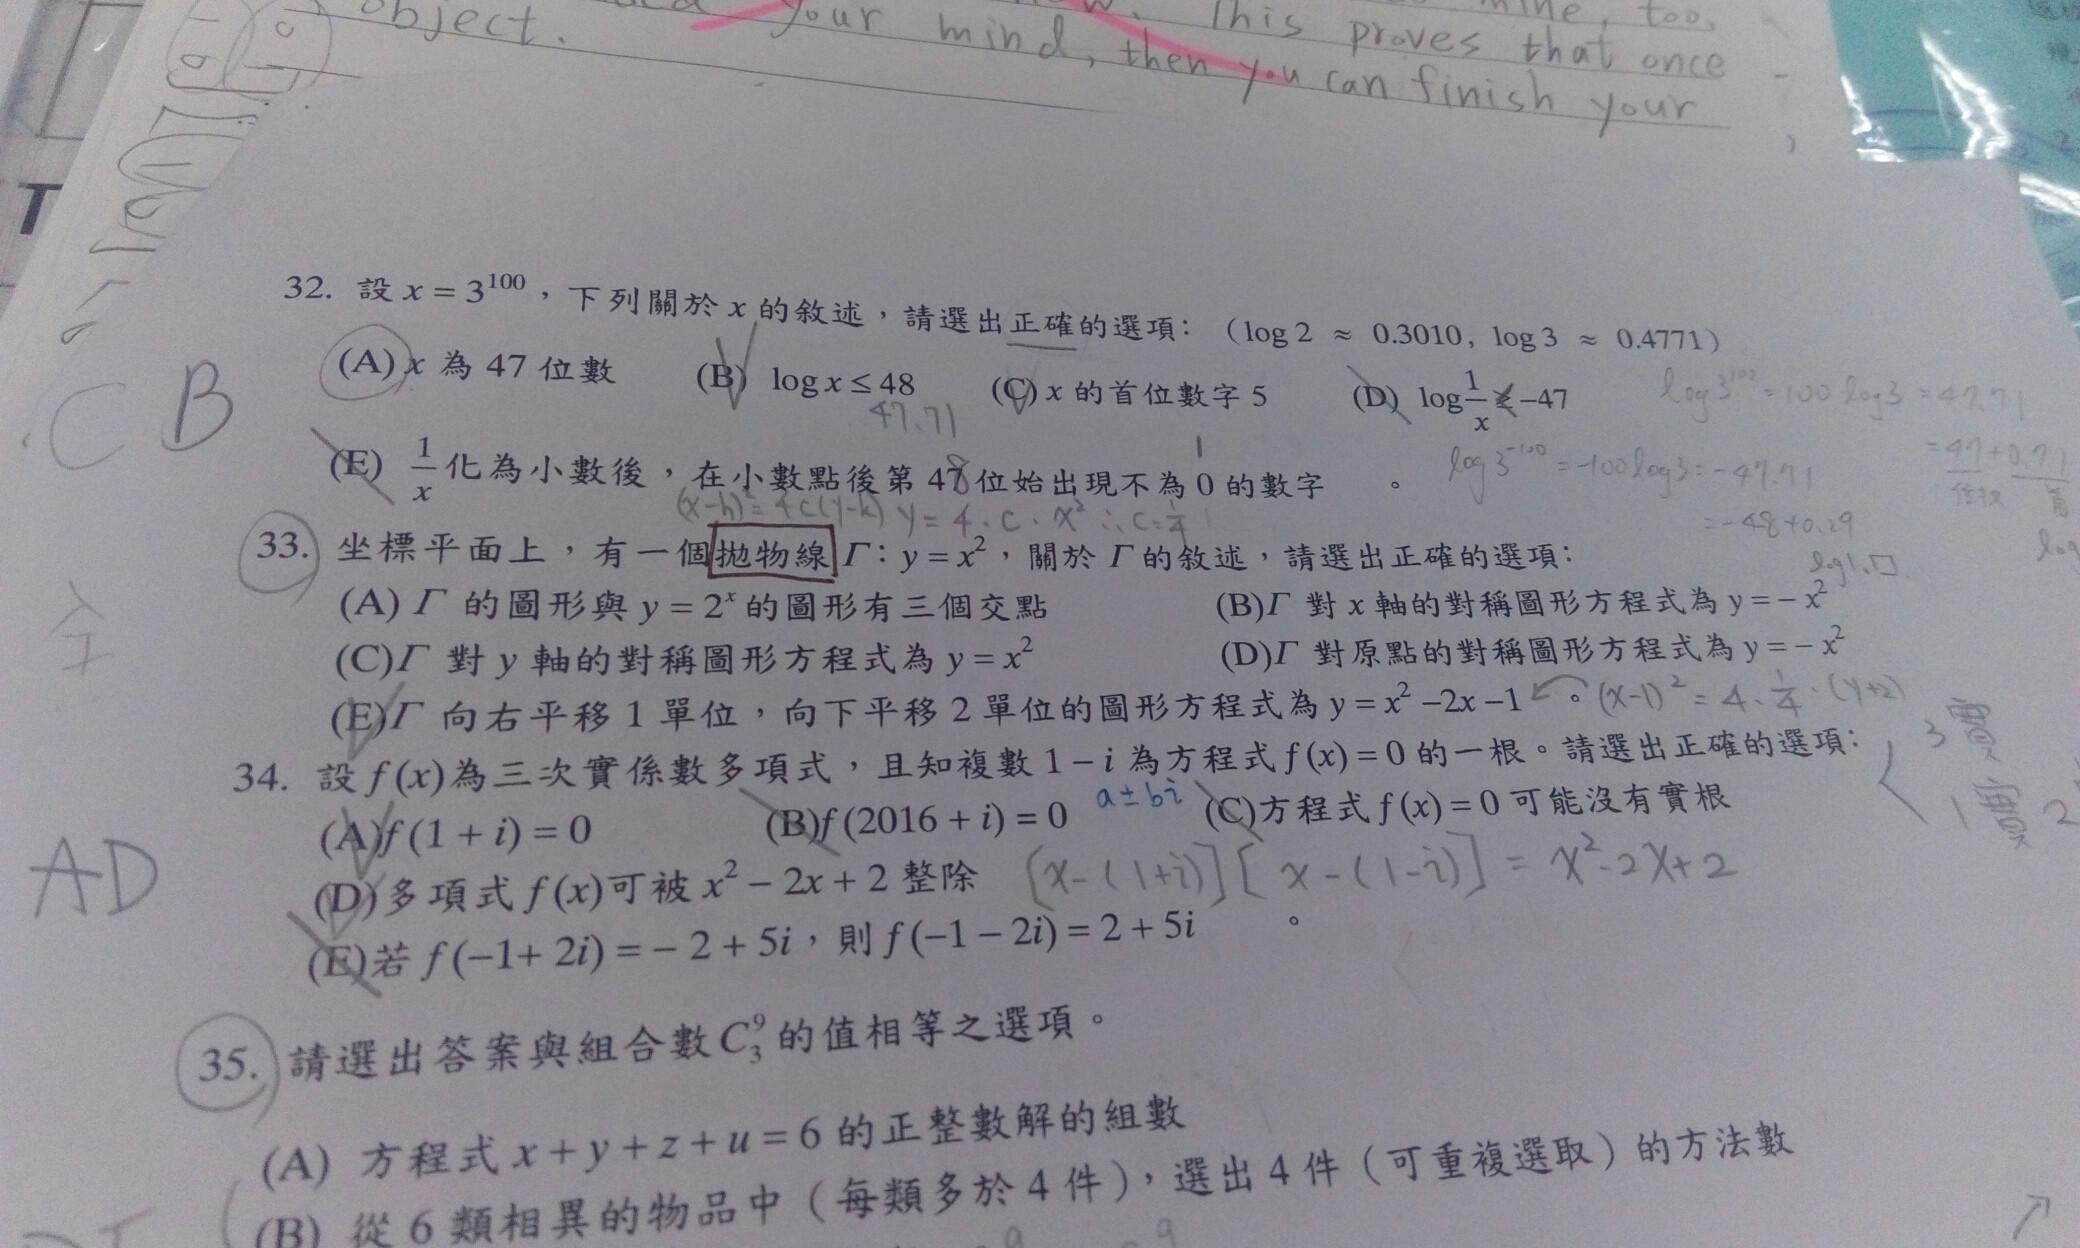 object.
your mind, then you can finish your
This proves that once
mine, too,
T
32. 設 x = 3^100，下列關於 x 的敘述，請選出正確的選項：（log 2 ≈ 0.3010, log 3 ≈ 0.4771）
(A) x 為 47 位數 (B) log x ≤ 48 (C) x 的首位數字 5 (D) log 1/x ≤ -47
47.71
log3^100 = 100 log3 = 47.71
= 47+0.71
C B
(E) 1/x 化為小數後，在小數點後第 48 位始出現不為 0 的數字。
log3^-100 = -100log3 = -47.71
= -48+0.29
(x-h)² = 4c(y-k) y = 4·c·x² ∴c=1/4
33. 坐標平面上，有一個拋物線 Γ：y = x²，關於 Γ 的敘述，請選出正確的選項：
(A) Γ 的圖形與 y = 2^x 的圖形有三個交點 (B)Γ 對 x 軸的對稱圖形方程式為 y = - x²
(C)Γ 對 y 軸的對稱圖形方程式為 y = x² (D)Γ 對原點的對稱圖形方程式為 y = - x²
(E)Γ 向右平移 1 單位，向下平移 2 單位的圖形方程式為 y = x² -2x -1。 (x-1)² = 4·1/4·(y+2)
全
34. 設 f (x)為三次實係數多項式，且知複數 1 - i 為方程式 f (x) = 0 的一根。請選出正確的選項：
3實
1實2
(A)f (1 + i) = 0 (B)f (2016 + i) = 0 a±bi (C)方程式 f (x) = 0 可能沒有實根
AD
(D)多項式 f (x)可被 x² - 2x + 2 整除 [x-(1+i)][x-(1-i)] = x²-2x+2
(E)若 f (-1+ 2i) = - 2 + 5i，則 f (-1 - 2i) = 2 + 5i。
35. 請選出答案與組合數 C⁹₃ 的值相等之選項。
(A) 方程式 x + y + z + u = 6 的正整數解的組數
(B) 從 6 類相異的物品中（每類多於 4 件），選出 4 件（可重複選取）的方法數